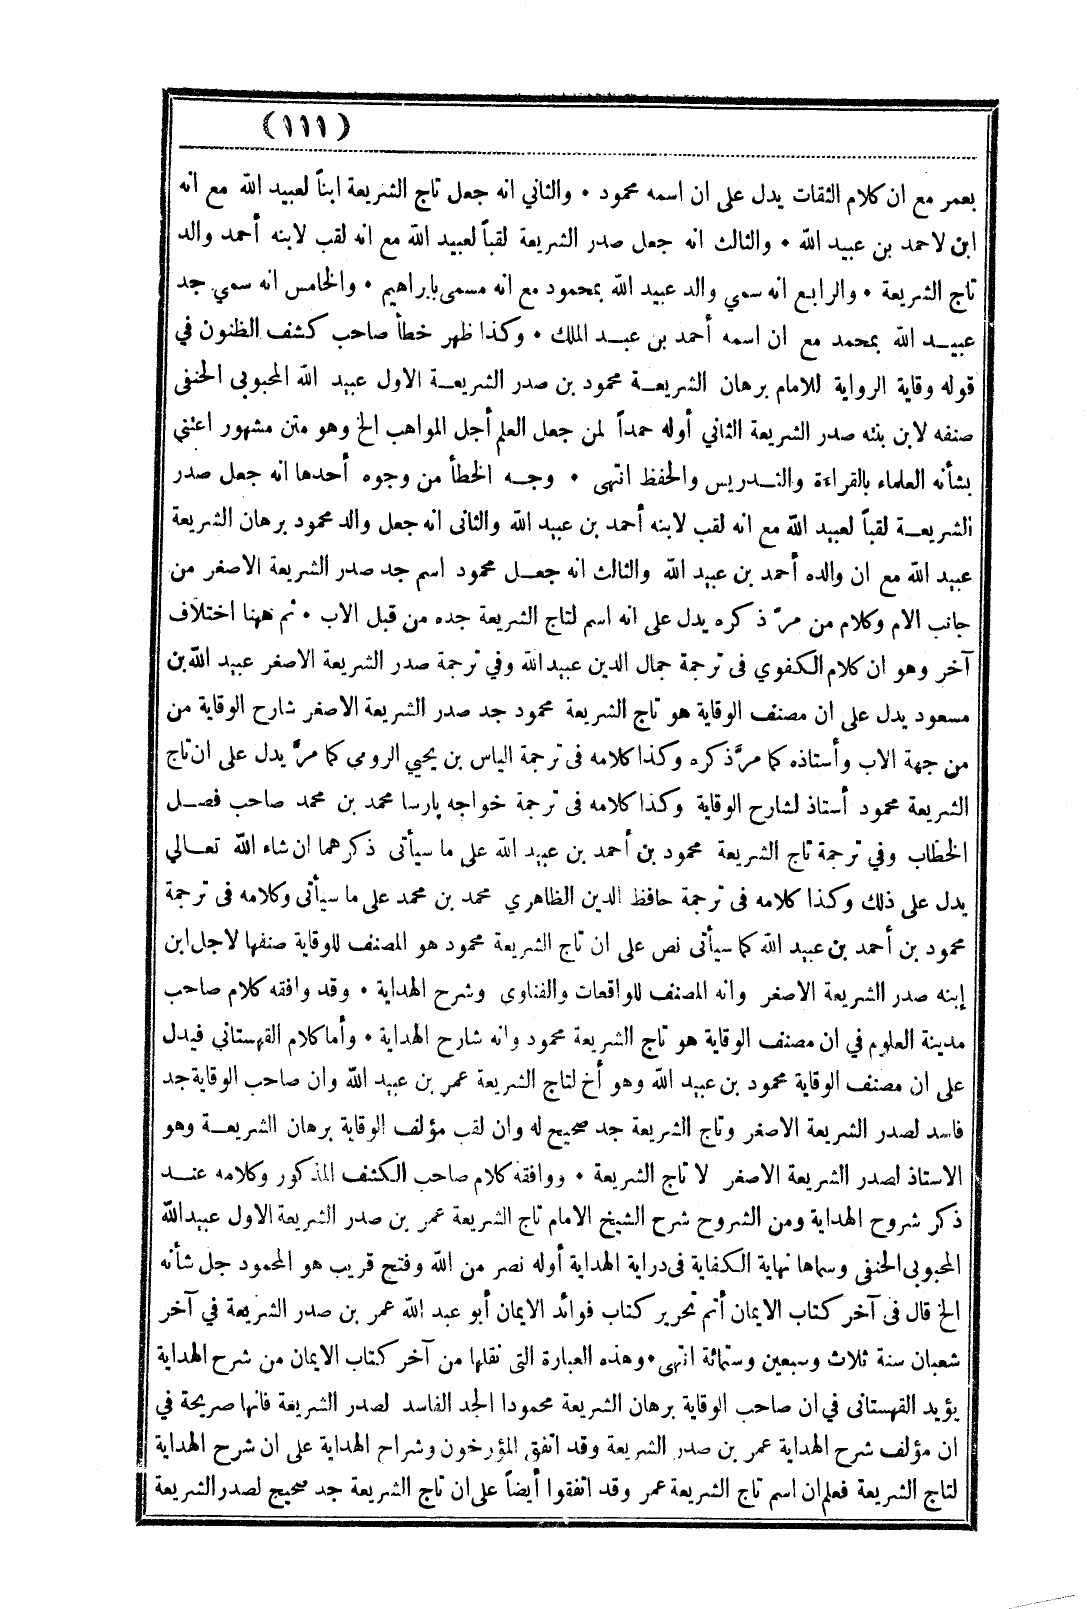 (١١١)
بعمر مع ان كلام الثقات يدل على ان اسمه محمود • والثاني انه جعل تاج الشريعة ابناً لعبيد الله مع انه
ابن لاحمد بن عبيد الله • والثالث انه جعل صدر الشريعة لقباً لعبيد الله مع انه لقب لابنه أحمد والد
تاج الشريعة • والرابع انه سمي والد عبيد الله بمحمود مع انه مسمى بابراهيم • والخامس انه سمي جد
عبيد الله بمحمد مع ان اسمه أحمد بن عبد الملك • وكذا ظهر خطأ صاحب كشف الظنون في
قوله وقاية الرواية للامام برهان الشريعة محمود بن صدر الشريعة الاول عبيد الله المحبوبى الحنفى
صنفه لابن بنته صدر الشريعة الثاني أوله حمداً لمن جعل العلم أجل المواهب الخ وهو متن مشهور اعتني
بشأنه العلماء بالقراءة والتدريس والحفظ انتهى • وجه الخطأ من وجوه أحدها انه جعل صدر
الشريعة لقباً لعبيد الله مع انه لقب لابنه أحمد بن عبيد الله والثانى انه جعل والد محمود برهان الشريعة
عبيد الله مع ان والده أحمد بن عبيد الله والثالث انه جعل محمود اسم جد صدر الشريعة الاصغر من
جانب الام وكلام من مرّ ذكره يدل على انه اسم لتاج الشريعة جده من قبل الاب • ثم ههنا اختلاف
آخر وهو ان كلام الكفوي فى ترجمة جمال الدين عبيد الله وفي ترجمة صدر الشريعة الاصغر عبيد الله بن
مسعود يدل على ان مصنف الوقاية هو تاج الشريعة محمود جد صدر الشريعة الاصغر شارح الوقاية من
من جهة الاب وأستاذه كما مرَّ ذكره وكذا كلامه فى ترجمة الياس بن يحيي الرومى كما مرَّ يدل على ان تاج
الشريعة محمود أستاذ لشارح الوقاية وكذا كلامه فى ترجمة خواجه پارسا محمد بن محمد صاحب فصل
الخطاب وفي ترجمة تاج الشريعة محمود بن أحمد بن عبيد الله على ما سيأتى ذكرهما ان شاء الله تعالي
يدل على ذلك وكذا كلامه فى ترجمة حافظ الدين الظاهري محمد بن محمد على ما سيأتى وكلامه فى ترجمة
محمود بن أحمد بن عبيد الله كما سيأتى نص على ان تاج الشريعة محمود هو المصنف للوقاية صنفها لاجل ابن
إبنه صدر الشريعة الاصغر وانه المصنف للواقعات والفتاوي وشرح الهداية • وقد وافقه كلام صاحب
مدينة العلوم في ان مصنف الوقاية هو تاج الشريعة محمود وانه شارح الهداية • وأما كلام القهستاني فيدل
على ان مصنف الوقاية محمود بن عبيد الله وهو أخ لتاج الشريعة عمر بن عبيد الله وان صاحب الوقاية جد
فاسد لصدر الشريعة الاصغر وتاج الشريعة جد صحيح له وان لقب مؤلف الوقاية برهان الشريعة وهو
الاستاذ لصدر الشريعة الاصغر لا تاج الشريعة • ووافقه كلام صاحب الكشف المذكور وكلامه عند
ذكر شروح الهداية ومن الشروح شرح الشيخ الامام تاج الشريعة عمر بن صدر الشريعة الاول عبيد الله
المحبوبى الحنفى وسماها نهاية الكفاية فى دراية الهداية أوله نصر من الله وفتح قريب هو المحمود جل شأنه
الخ قال فى آخر كتاب الايمان أتم تحرير كتاب فوائد الايمان أبو عبد الله عمر بن صدر الشريعة في آخر
شعبان سنة ثلاث وسبعين وستمائة انتهى • وهذه العبارة التى نقلها من آخر كتاب الايمان من شرح الهداية
يؤيد القهستانى في ان صاحب الوقاية برهان الشريعة محمودا الجد الفاسد لصدر الشريعة فانها صريحة في
ان مؤلف شرح الهداية عمر بن صدر الشريعة وقد اتفق المؤرخون وشراح الهداية على ان شرح الهداية
لتاج الشريعة فعلم ان اسم تاج الشريعة عمر وقد اتفقوا أيضاً على ان تاج الشريعة جد صحيح لصدر الشريعة